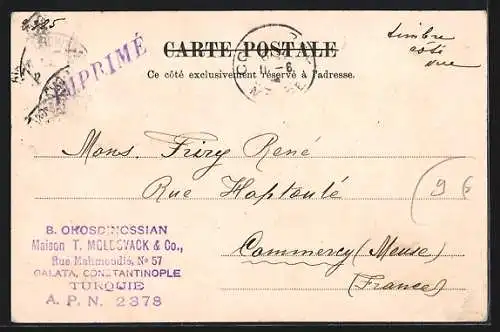 2325
IMPRIMÉ
CARTE POSTALE
Ce côté exclusivement réservé à l'adresse.
timbre
côté
vue
Mons. Firy René
Rue Haptouté
Commercy (Meuse)
(France)
96
B. OKOSDINOSSIAN
Maison T. MOLDOVACK & Co.,
Rue Mahmoudié, No 57
GALATA, CONSTANTINOPLE
TURQUIE
A. P. N. 2378